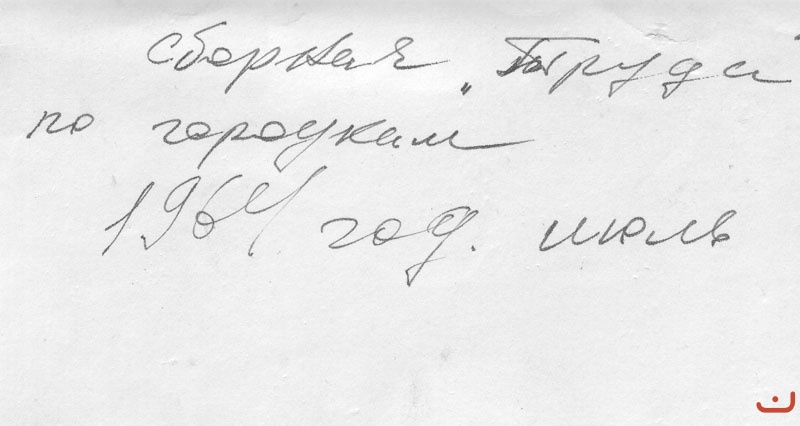 сборная „Труда"
по городкам
1964 год. июль